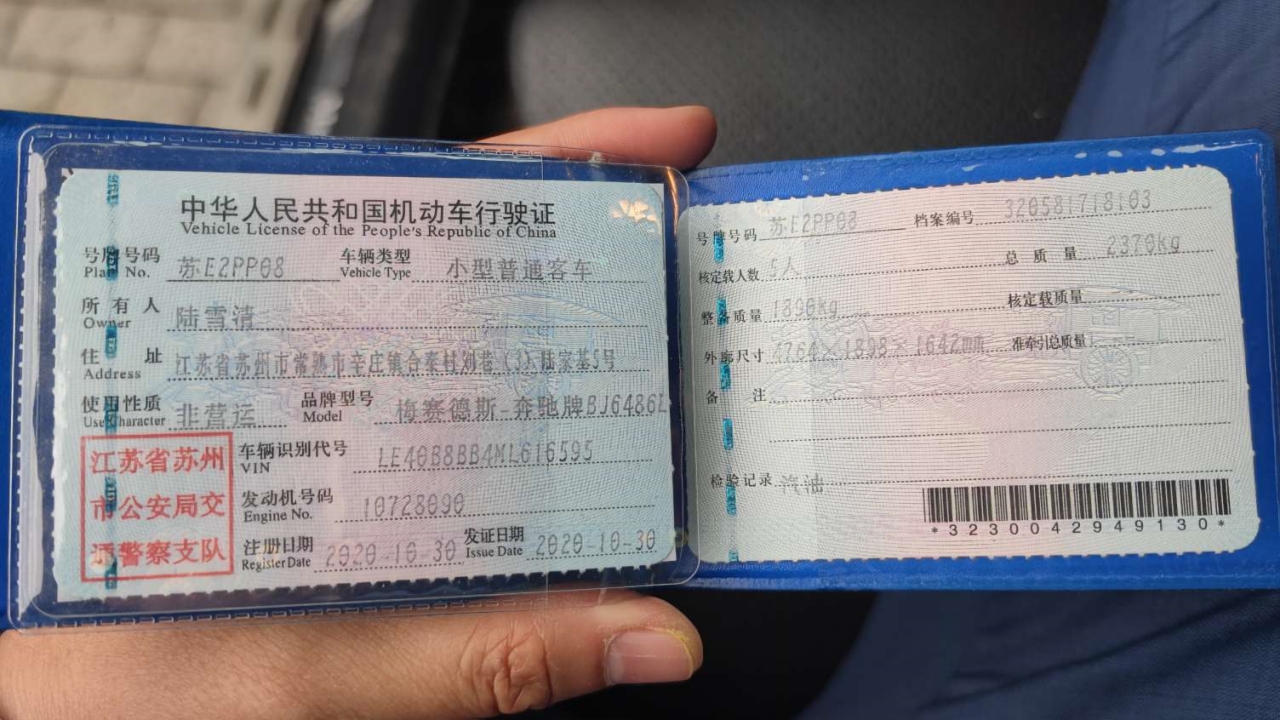 中华人民共和国机动车行驶证
Vehicle License of the People's Republic of China
号牌号码 苏E2PP08 车辆类型 小型普通客车
Plate No. Vehicle Type
所有人 陆雪清
Owner
住址 江苏省苏州市常熟市辛庄镇合泰村别巷(3)陆家基5号
Address
使用性质 非营运 品牌型号 梅赛德斯-奔驰牌BJ6486L
Use Character Model
江苏省苏州
市公安局交
通警察支队
车辆识别代号 LE40B8BB4ML616595
VIN
发动机号码 10728090
Engine No.
注册日期 2020-10-30 发证日期 2020-10-30
Register Date Issue Date
号牌号码 苏E2PP08 档案编号 320581718103
核定载人数 5人 总质量 2370kg
整备质量 1890kg 核定载质量
外廓尺寸 4764×1898×1642mm 准牵引总质量
备注
检验记录 汽油
*3230042949130*